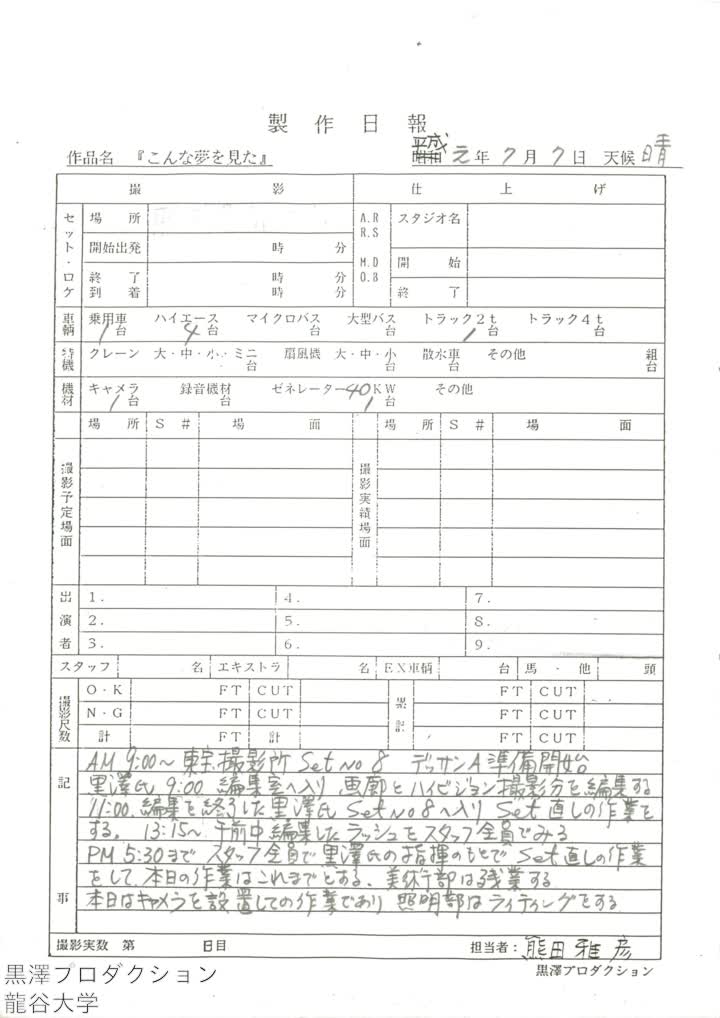 製作日報
作品名 『こんな夢を見た』 平成元年7月7日 天候 晴
撮影 仕上げ
セット・ロケ 場所 A.R R.S スタジオ名
開始出発 時 分 M.D O.B 開始
終了到着 時 分 終了
車輌 乗用車 1台 ハイエース 4台 マイクロバス 台 大型バス 台 トラック2t 1台 トラック4t 台
特機 クレーン 大・中・小・ミニ 台 扇風機 大・中・小 台 散水車 台 その他 組 台
機材 キャメラ 1台 録音機材 台 ゼネレーター 40KW 1台 その他
場所 S# 場面 場所 S# 場面
撮影予定場面 撮影実績場面
出演者 1. 4. 7.
2. 5. 8.
3. 6. 9.
スタッフ 名 エキストラ 名 EX車輌 台 馬・他 頭
撮影尺数 O・K FT CUT 累計 FT CUT
N・G FT CUT FT CUT
計 FT 計 FT CUT
記事
AM 9:00〜東宝撮影所 Set No 8 デッサンA準備開始
黒澤氏 9:00 編集室へ入り 画廊とハイビジョン撮影分を編集する
11:00 編集を終了した黒澤氏 Set No 8へ入り Set 直しの作業を
する。 13:15〜 午前中編集したラッシュをスタッフ全員でみる
PM 5:30まで スタッフ全員で黒澤氏の指揮のもとで Set直しの作業
をして、本日の作業はこれまでとする、美術部は残業する
本日はキャメラを設置しての作業であり 照明部はライティングをする
撮影実数 第 日目 担当者: 熊田雅彦
黒澤プロダクション
黒澤プロダクション
龍谷大学